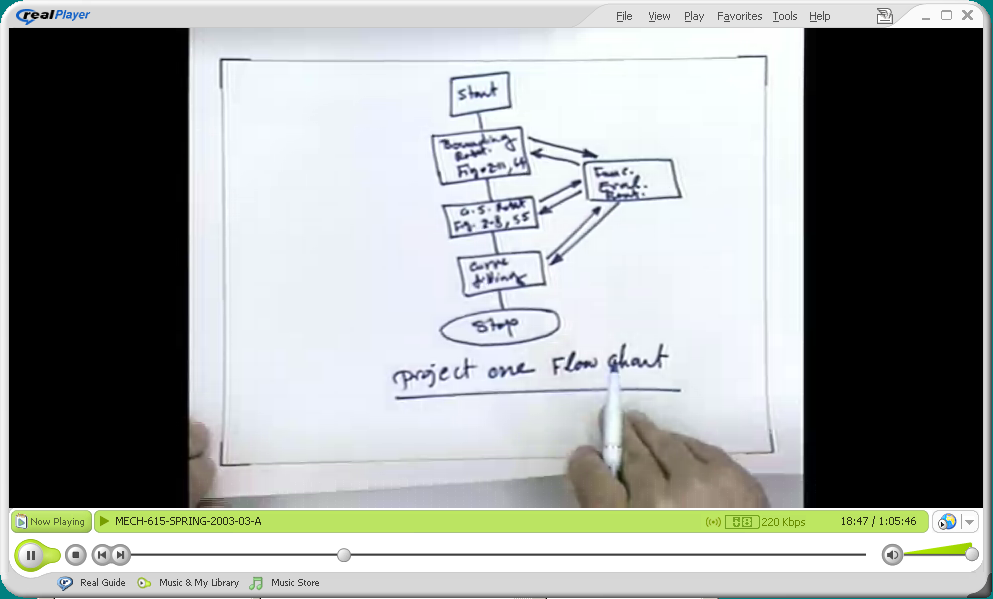 realPlayer
File View Play Favorites Tools Help
Start
Bounding
Rout.
Fig. 2-11, 64
Func.
Eval.
Rout.
G. S. Rout
Fig. 2-8, 55
Curve
fitting
Stop
Project one Flow chart
Now Playing
MECH-615-SPRING-2003-03-A
220 Kbps
18:47 / 1:05:46
Real Guide
Music & My Library
Music Store